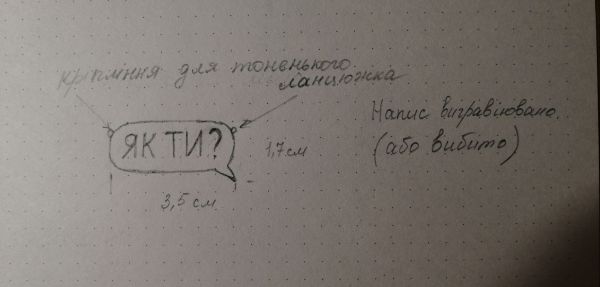 кріплення для тоненького
ланцюжка
Напис вигравіювано.
(або вибито)
ЯК ТИ?
1,7 см
3,5 см